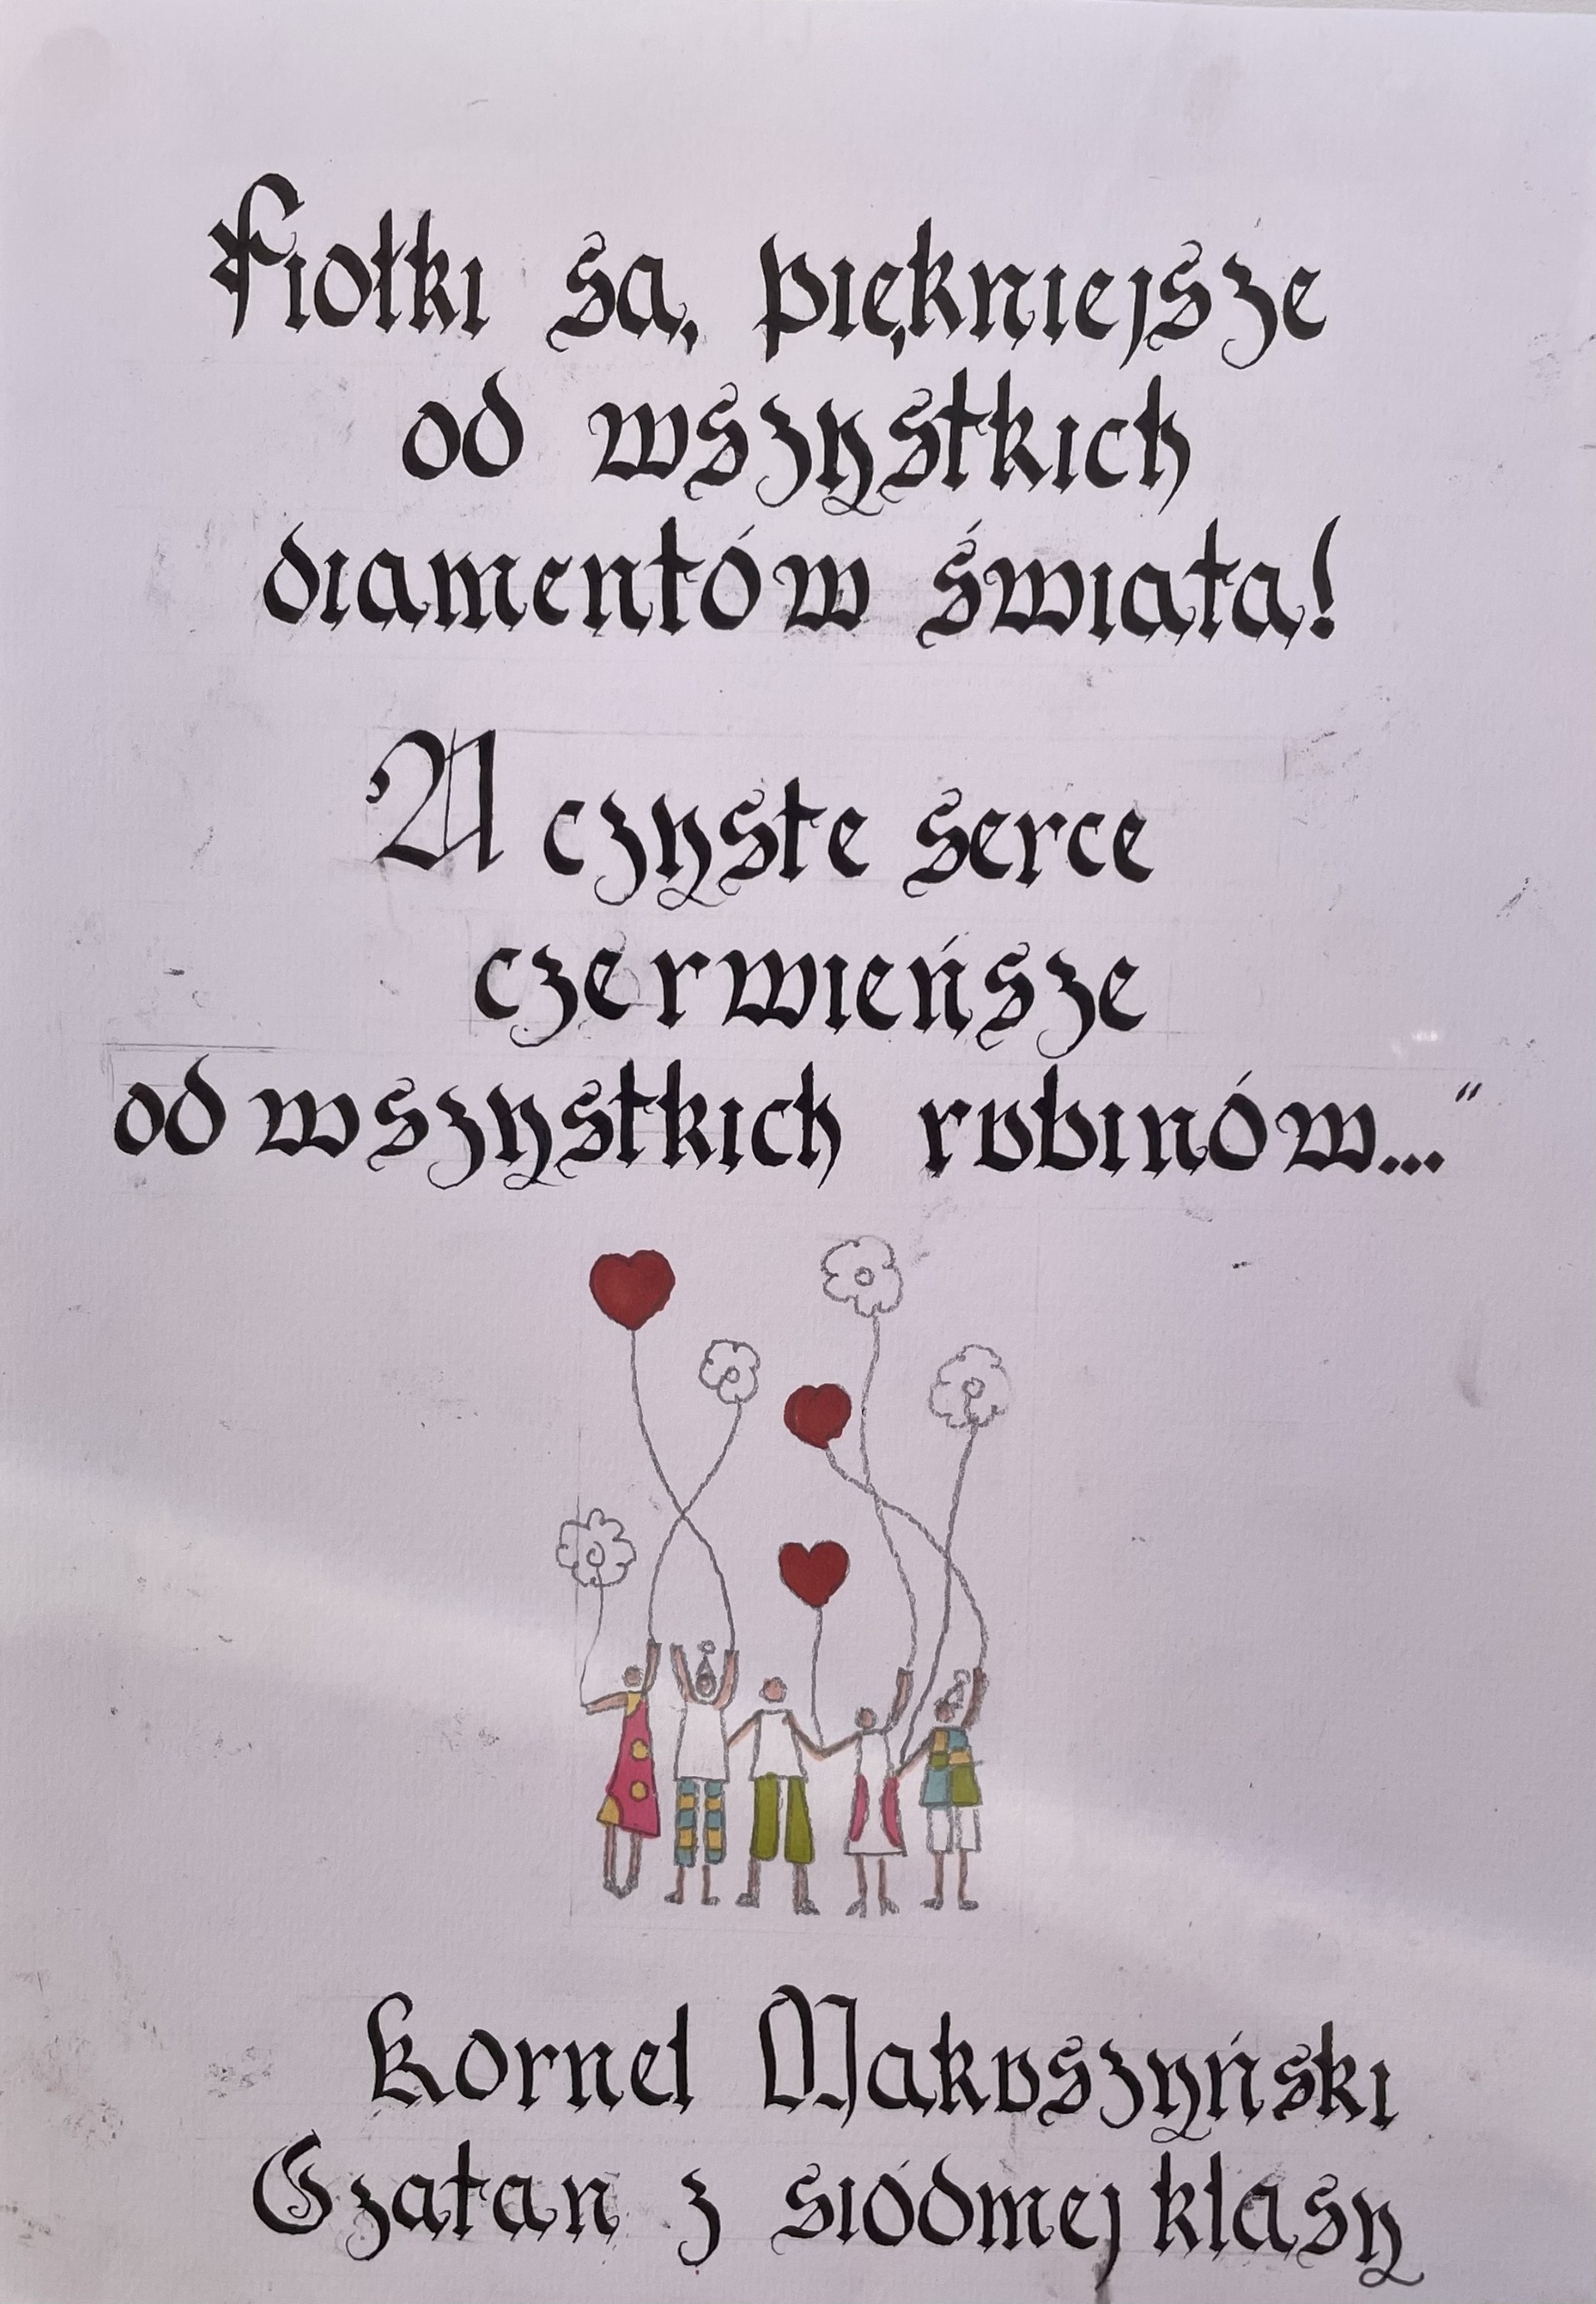 Fiołki są piękniejsze
od wszystkich
diamentów świata!
A czyste serce
czerwieńsze
od wszystkich rubinów..."
Kornel Makuszyński
Szatan z siódmej klasy